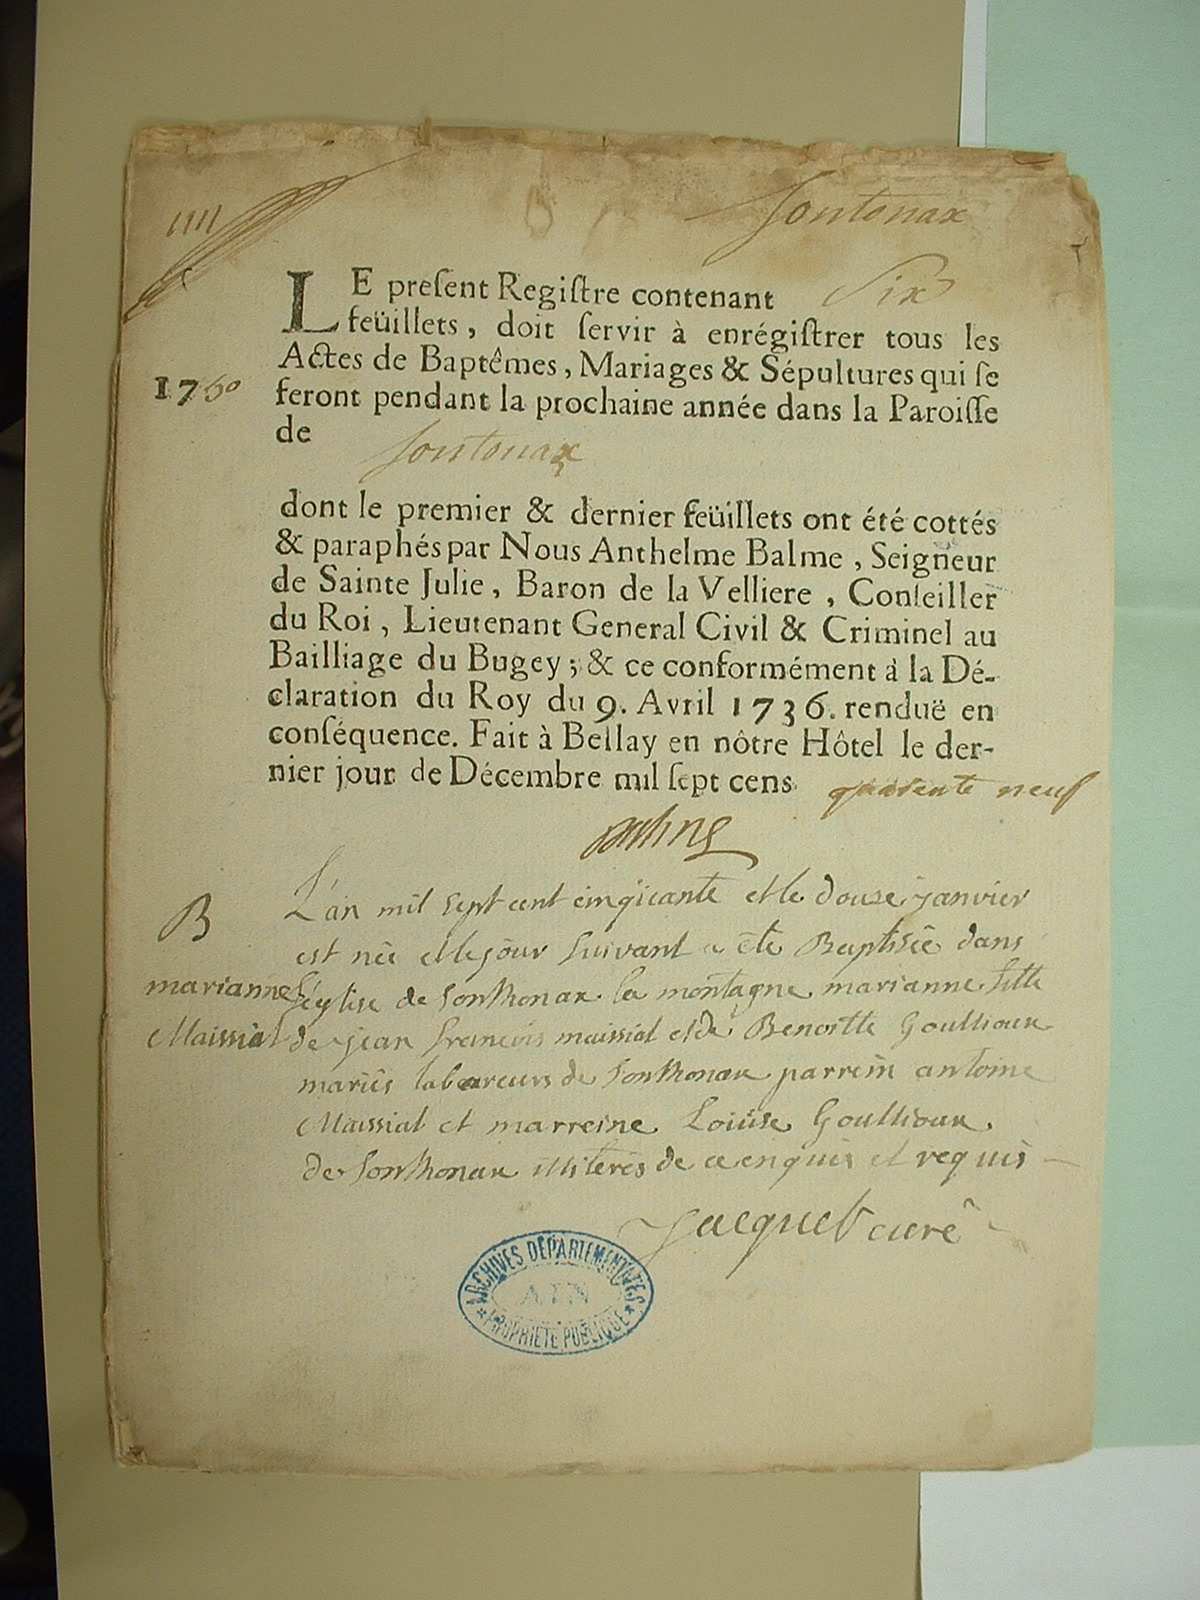 Sontonax
LE preſent Regiſtre contenant Six
feüillets, doit ſervir à enrégiſtrer tous les
Actes de Baptêmes, Mariages & Sépultures qui ſe
1750
feront pendant la prochaine année dans la Paroiſſe
de Sontonax
dont le premier & dernier feüillets ont été cottés
& paraphés par Nous Anthelme Balme, Seigneur
de Sainte Julie, Baron de la Velliere, Conſeiller
du Roi, Lieutenant General Civil & Criminel au
Bailliage du Bugey; & ce conformément à la Dé-
claration du Roy du 9. Avril 1736. renduë en
conſéquence. Fait à Bellay en nôtre Hôtel le der-
nier jour de Décembre mil ſept cens quarente neuf
Balme
B
marianne
Maissiat
L'an mil sept cent cinquante et le douze janvier
est née et le jour suivant a été Baptisée dans
l'église de Sonthonax la montagne marianne fille
de jean francois maissiat et de Benoitte Goullioux
mariés laboureurs de Sonthonax parrein antoine
Maissiat et marreine Loüise Goullioux
de Sonthonax illiterés de ce enquis et requis
Jacquet curé
ARCHIVES DÉPARTEMENTALES
AIN
PROPRIÉTÉ PUBLIQUE